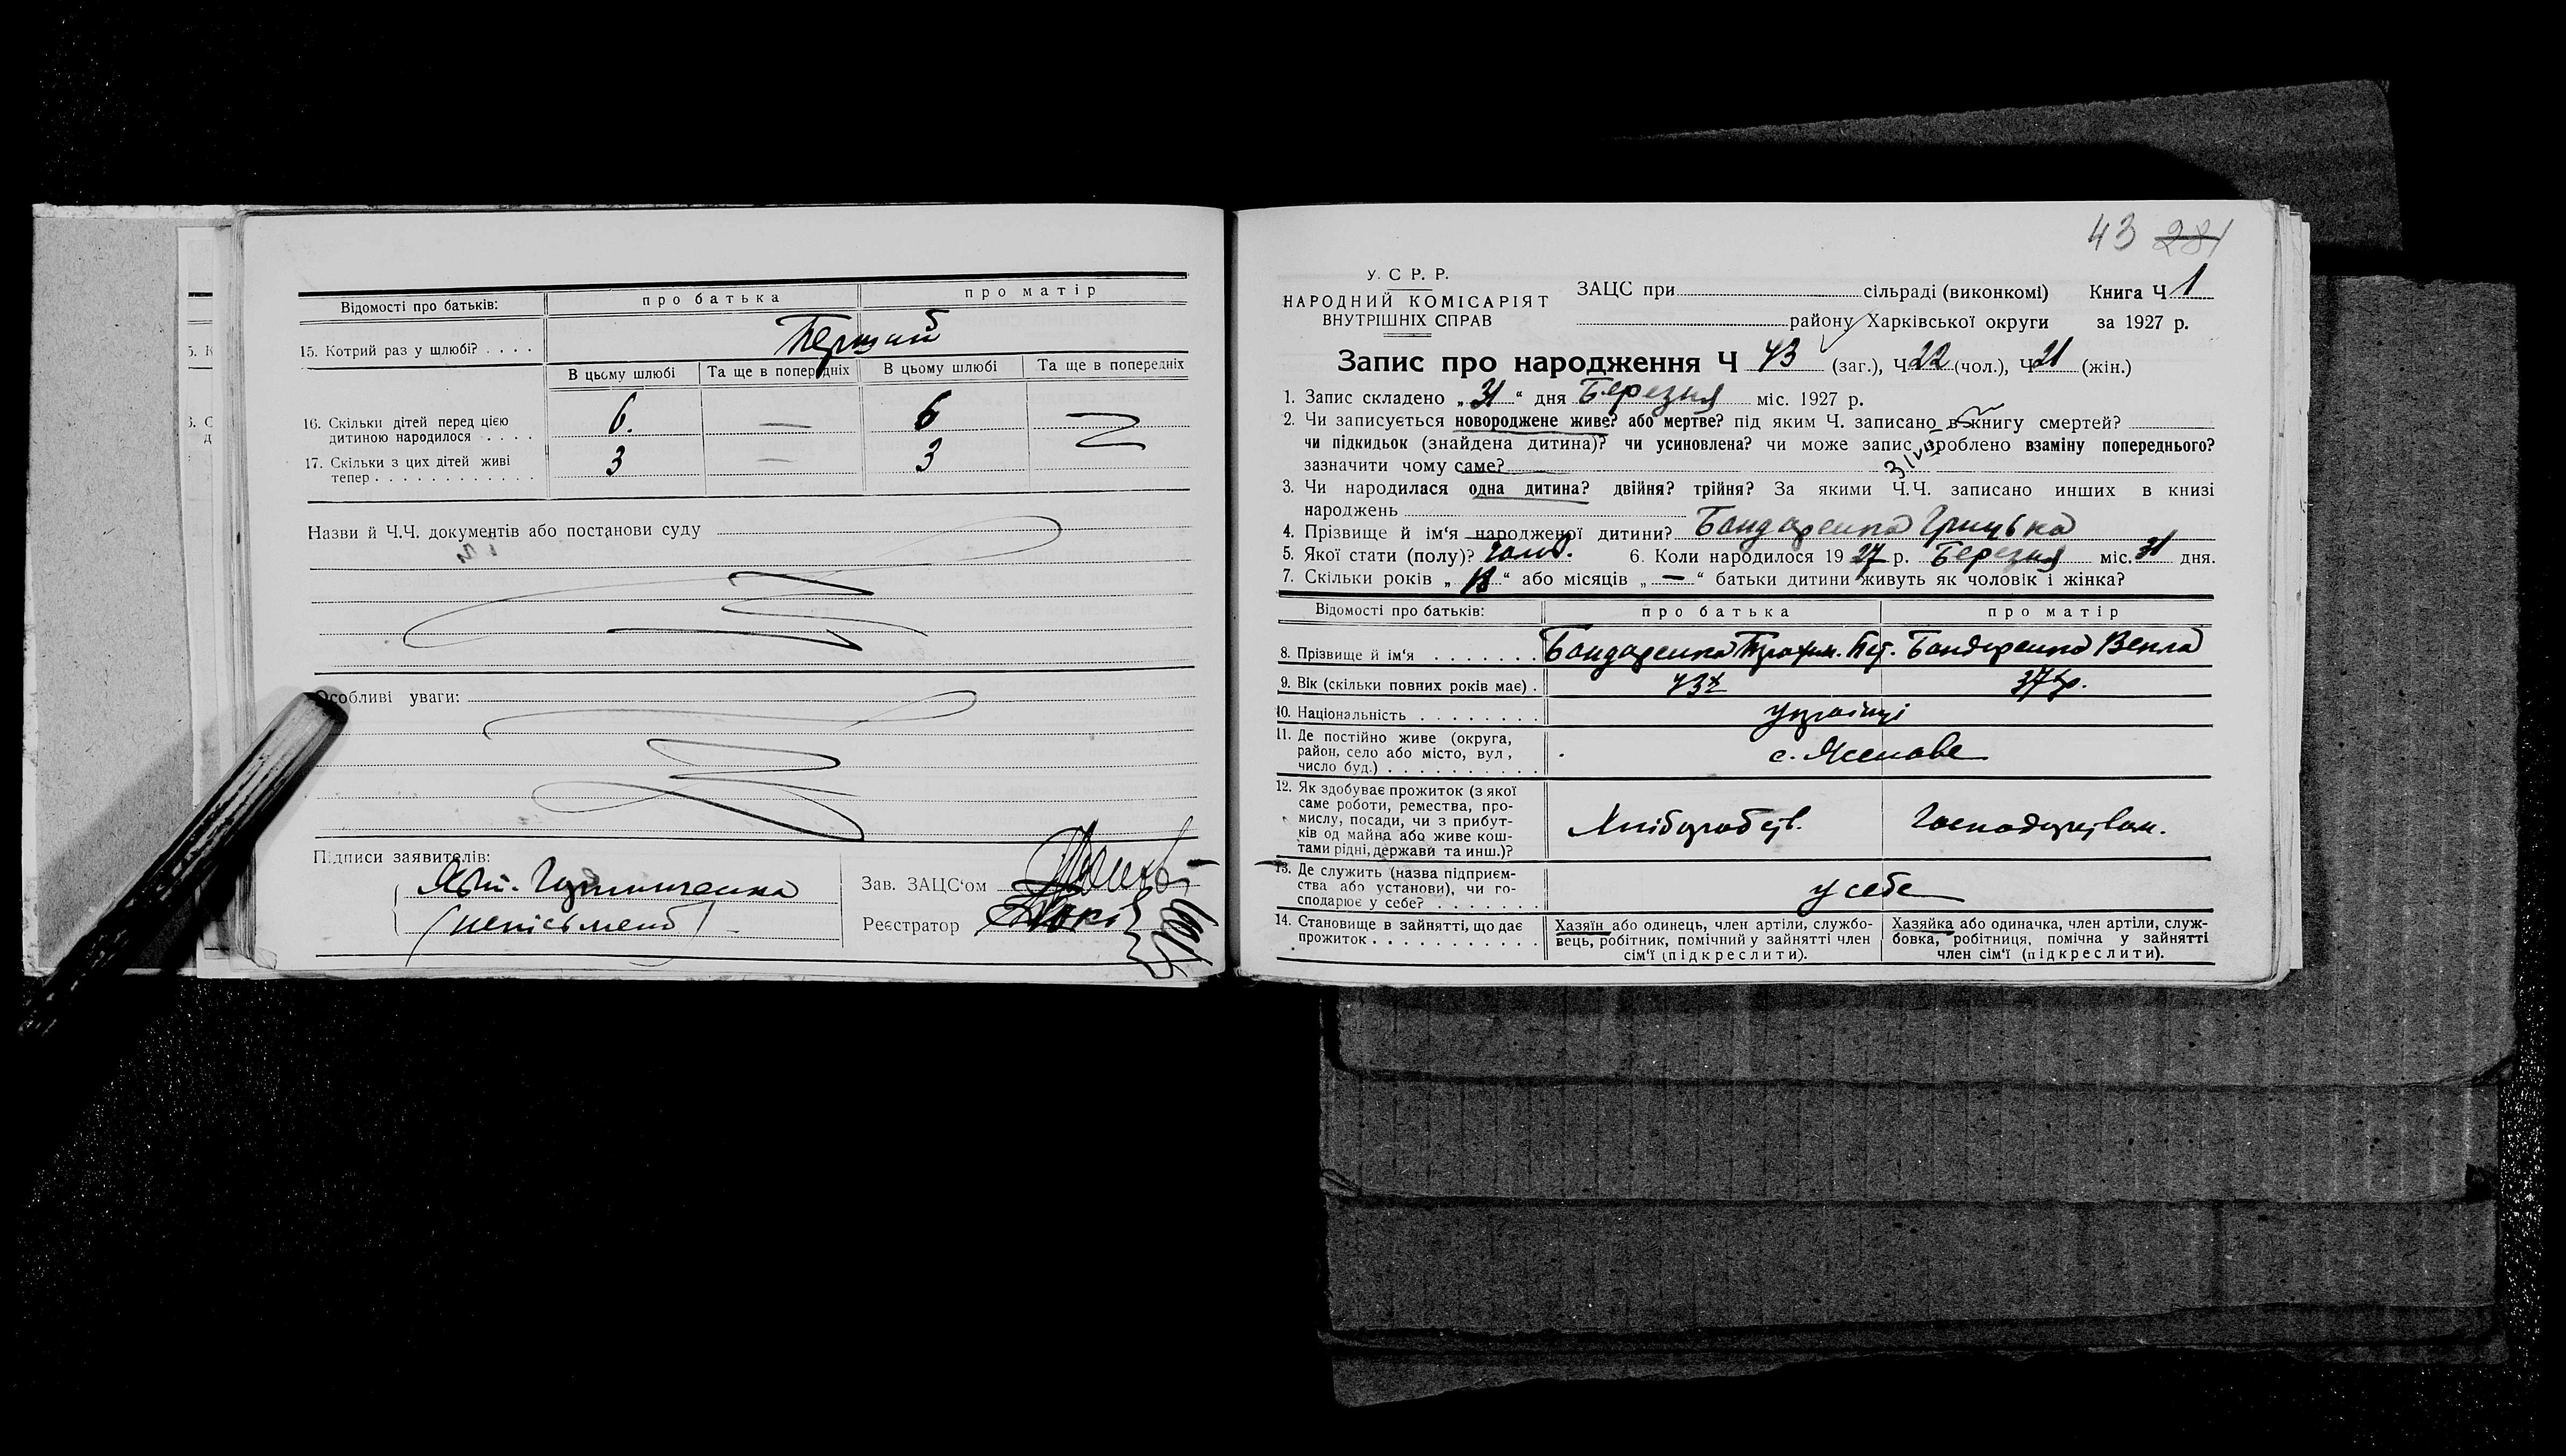 Відомості про батьків: про батька про матір
15. Котрий раз у шлюбі? . . . . Перший
В цьому шлюбі Та ще в попередніх В цьому шлюбі Та ще в попередніх
16. Скільки дітей перед цією
дитиною народилося . . . . 6. — 6 —
17. Скільки з цих дітей живі
тепер . . . . . . . . . . . . 3 — 3
Назви й Ч.Ч. документів або постанови суду
Особливі уваги:
Підписи заявителів:
(неписьмен)
Зав. ЗАЦС‘ом
Реєстратор
43 281
У. С Р. Р.
НАРОДНИЙ КОМІСАРІЯТ
ВНУТРІШНІХ СПРАВ
ЗАЦС при сільраді (виконкомі) Книга Ч 1
району Харківської округи за 1927 р.
Запис про народження Ч 43 (заг.), Ч 22 (чол.), Ч 21 (жін.)
1. Запис складено „ 31 “ дня Березня міс. 1927 р.
2. Чи записується новороджене живе? або мертве? під яким Ч. записано в книгу смертей?
чи підкидьок (знайдена дитина)? чи усиновлена? чи може запис зроблено взаміну попереднього?
зазначити чому саме?
3. Чи народилася одна дитина? двійня? трійня? За якими Ч.Ч. записано инших в книзі
народжень
4. Прізвище й ім‘я народженої дитини? Бондаренко Грицько
5. Якої стати (полу)? чолов. 6. Коли народилося 19 27 р. Березня міс. 31 дня.
7. Скільки років „ 18 “ або місяців „ — “ батьки дитини живуть як чоловік і жінка?
Відомості про батьків: про батька про матір
8. Прізвище й ім‘я . . . . . . . Бондаренко Трохим. Пет. Бондаренко Векла
9. Вік (скільки повних років має) . 43 37 р.
10. Національність . . . . . . . . Українці
11. Де постійно живе (округа,
район, село або місто, вул,
число буд.) . . . . . . . . . . . с. Ясенове
12. Як здобуває прожиток (з якої
саме роботи, ремества, про-
мислу, посади, чи з прибут-
ків од майна або живе кош-
тами рідні, держави та инш.)? Хліборобств. Господарством.
13. Де служить (назва підприєм-
ства або установи), чи го-
сподарює у себе? . . . . . . . у себе
14. Становище в зайнятті, що дає
прожиток . . . . . . . . . . . .
Хазяїн або одинець, член артіли, службо-
вець, робітник, помічний у зайнятті член
сім‘ї (підкреслити).
Хазяйка або одиначка, член артіли, служ-
бовка, робітниця, помічна у зайнятті
член сім‘ї (підкреслити).